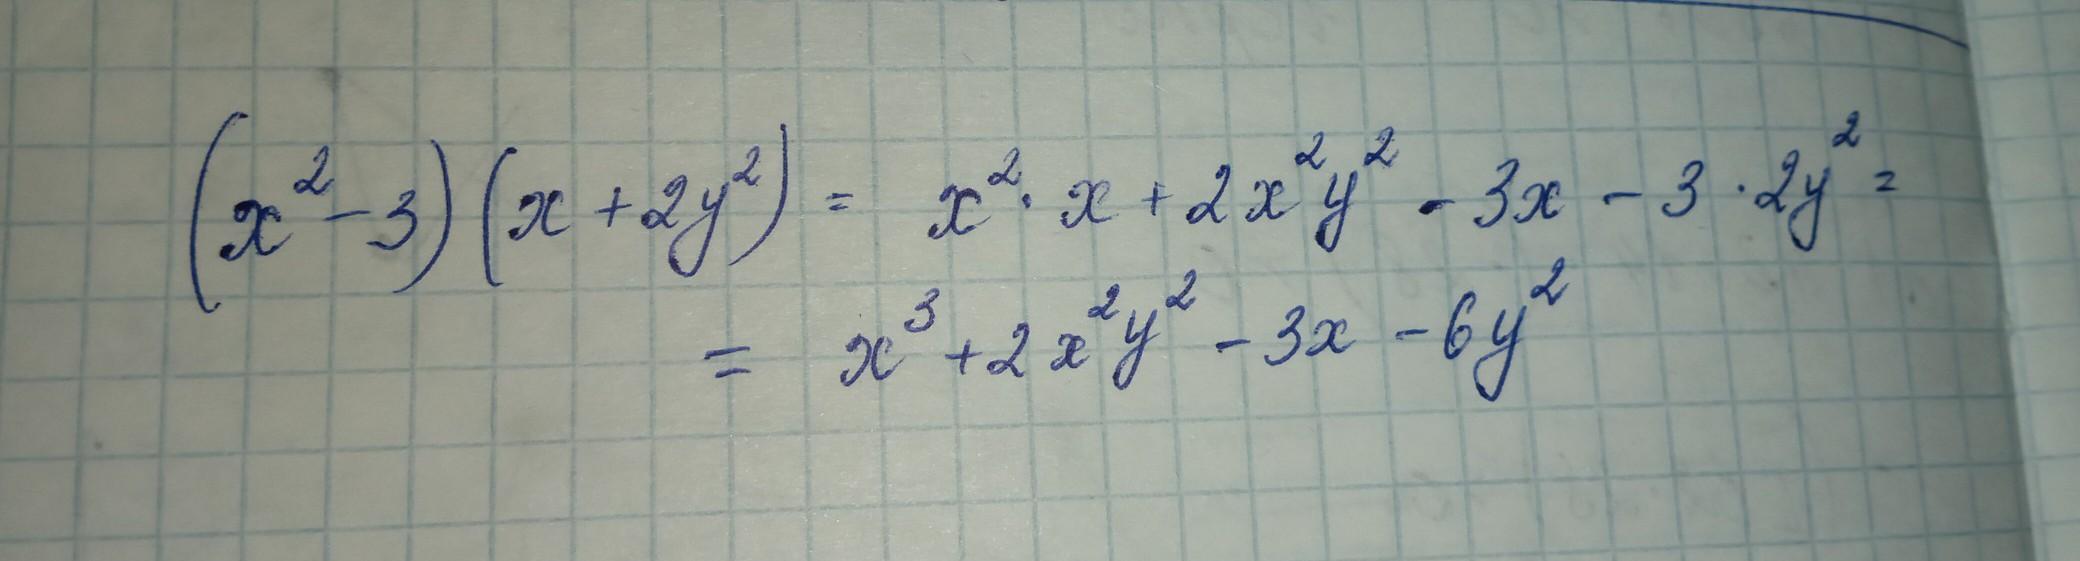 (x² - 3)(x + 2y²) = x² · x + 2x²y² - 3x - 3 · 2y² =
= x³ + 2x²y² - 3x - 6y²